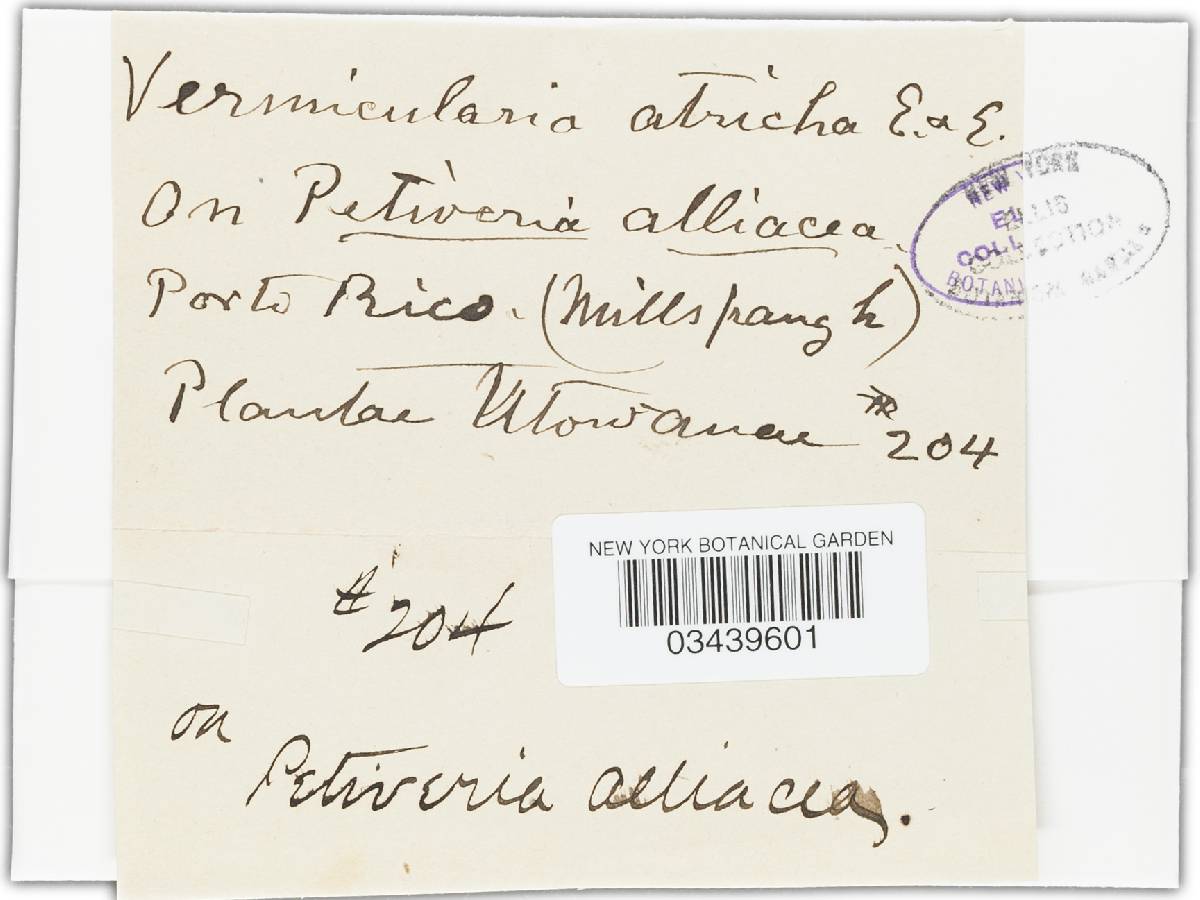 Vermicularia atricha E. & E.
On Petiveria alliacea.
Porto Rico. (Millspaugh)
Plantae Utowanae # 204
NEW YORK
ELLIS
COLLECTION
BOTANICAL GARDEN
NEW YORK BOTANICAL GARDEN
03439601
# 204
on
Petiveria alliacea.